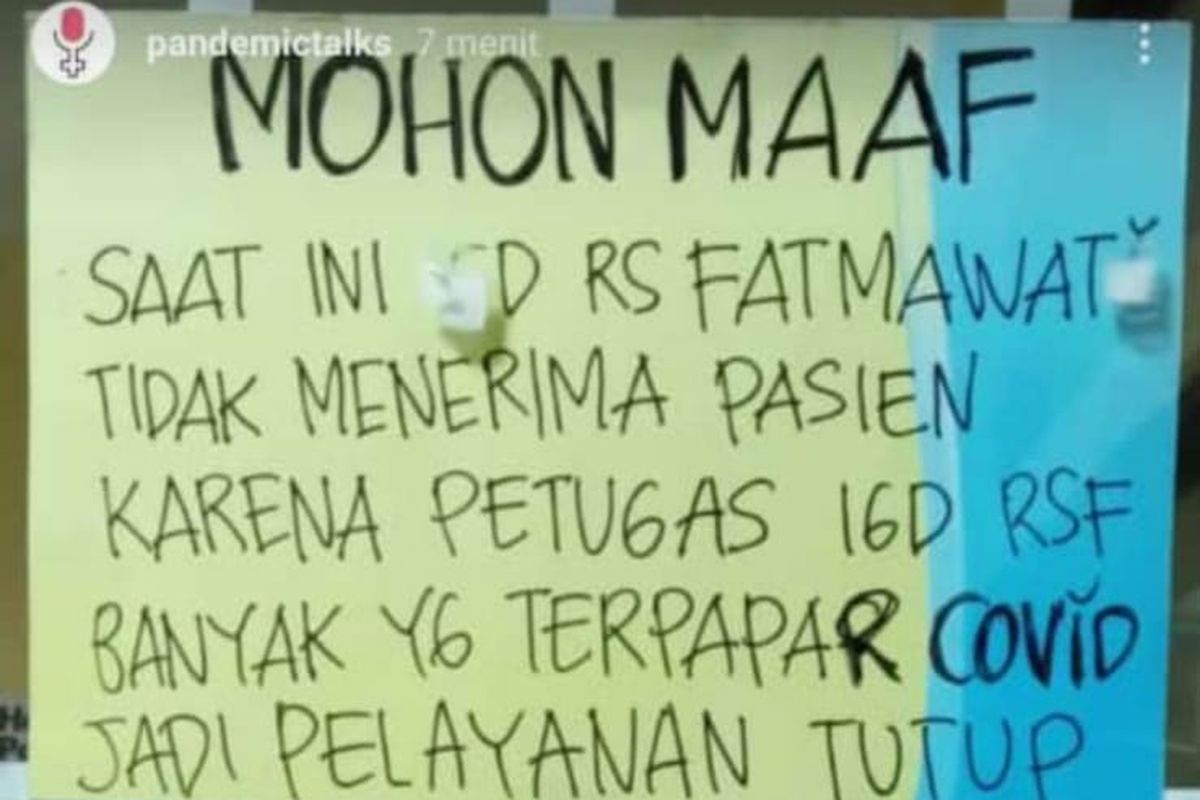 pandemictalks 7 menit
MOHON MAAF
SAAT INI RS FATMAWATI
TIDAK MENERIMA PASIEN
KARENA PETUGAS IGD RSF
BANYAK YG TERPAPAR COVID
JADI PELAYANAN TUTUP